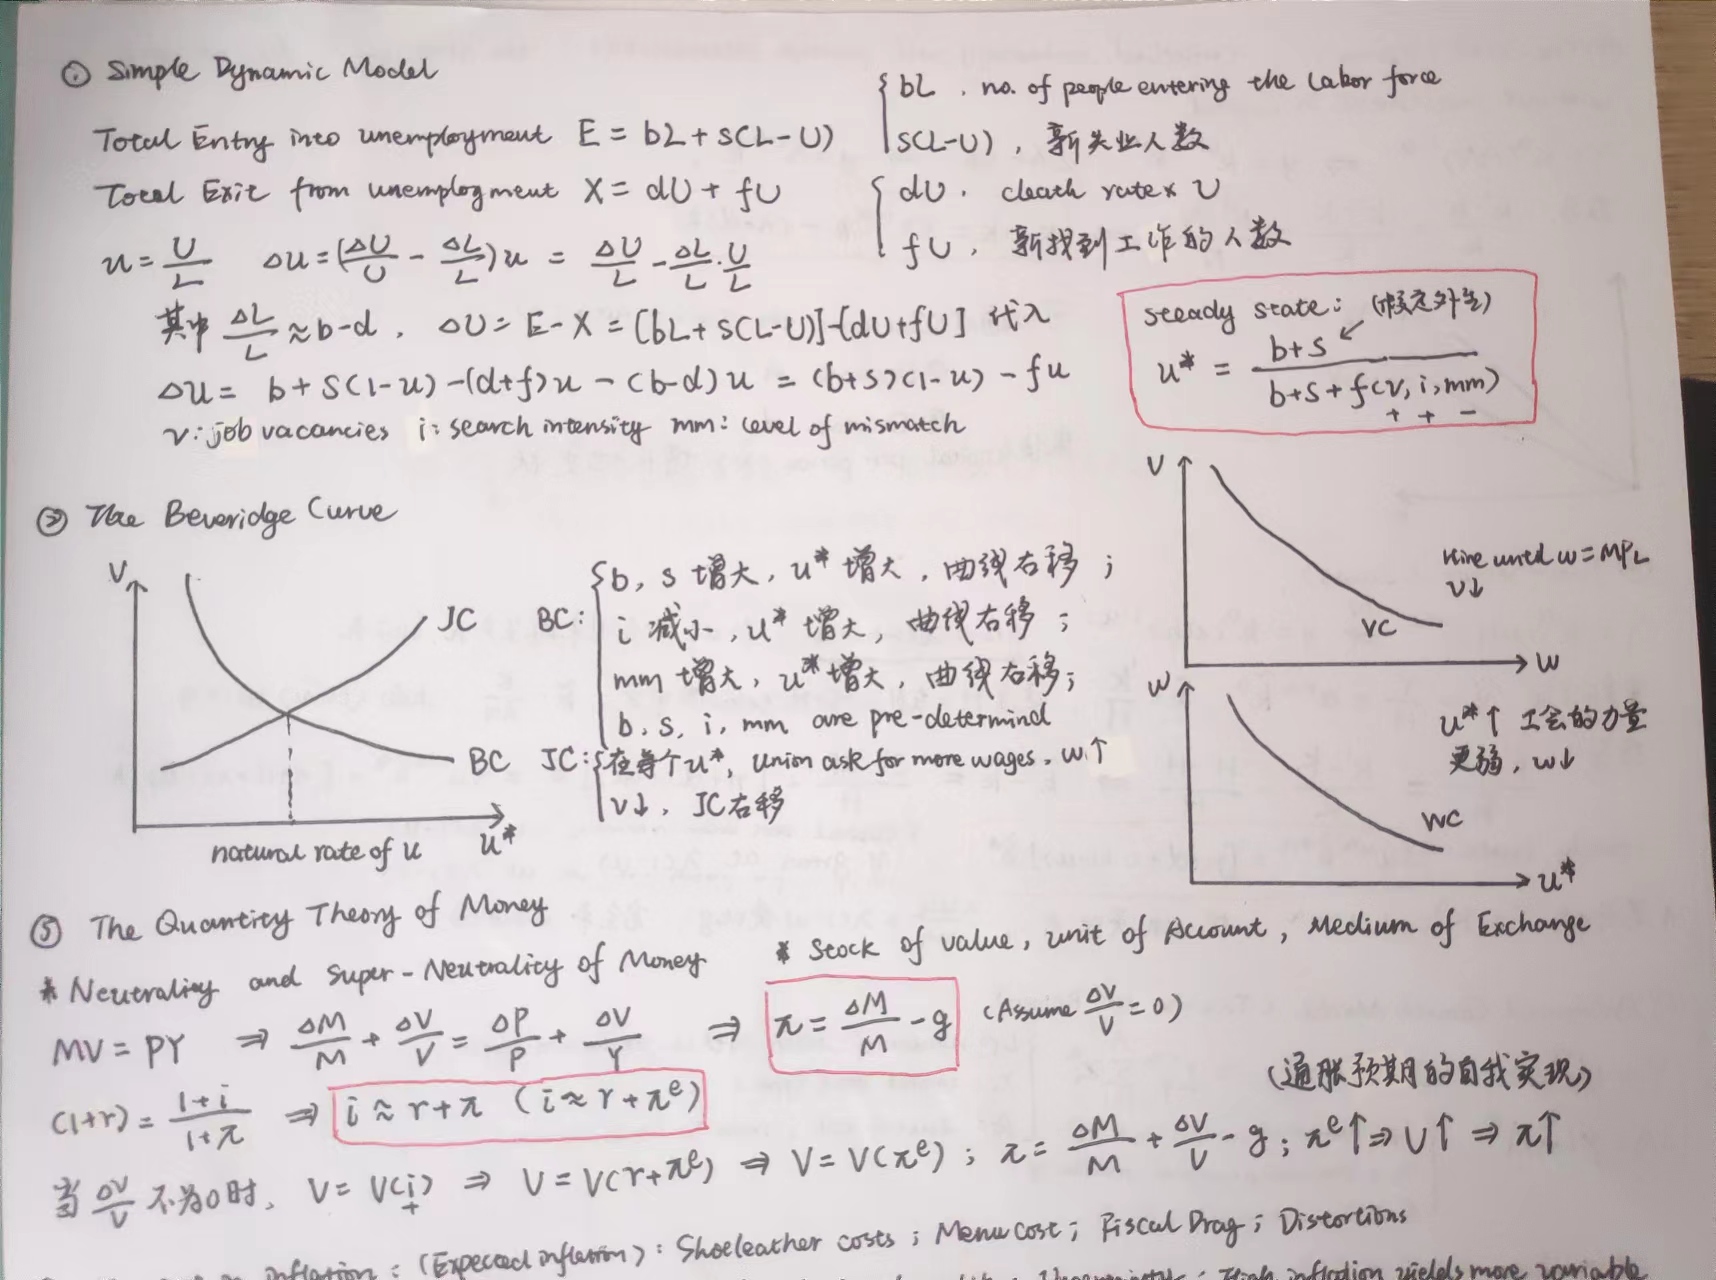 ① Simple Dynamic Model
Total Entry into unemployment E = bL + s(L-U)
{ bL . no. of people entering the Labor force
s(L-U) , 新失业人数
Total Exit from unemployment X = dU + fU
{ dU . death rate × U
fU . 新找到工作的人数
u = U/L  Δu = (ΔU/U - ΔL/L)u = ΔU/L - ΔL/L · U/L
其中 ΔL/L ≈ b-d . ΔU = E-X = [bL + s(L-U)]-[dU+fU] 代入
Δu = b + s(1-u) -(d+f)u - (b-d)u = (b+s)(1-u) - fu
v: job vacancies i: search intensity mm: level of mismatch
steady state: (假定外生)
u* = (b+s)/(b+s+f(v, i, mm))
+ + -
② The Beveridge Curve
V
JC
BC
natural rate of u
u*
BC: { b, s 增大, u* 增大, 曲线右移 ;
i 减小, u* 增大, 曲线右移 ;
mm 增大, u* 增大, 曲线右移;
b, s, i, mm are pre-determind
JC: { 在每个u*, union ask for more wages. w↑
v↓, JC右移
V
Hire until w = MPL
v↓
VC
w
w
u*↑ 工会的力量
更弱, w↓
WC
u*
⑤ The Quantity Theory of Money
* Neutrality and Super-Neutrality of Money
* Stock of value, unit of Account, Medium of Exchange
MV = PY ⇒ ΔM/M + ΔV/V = ΔP/P + ΔV/Y ⇒ π = ΔM/M - g (Assume ΔV/V = 0)
(1+r) = (1+i)/(1+π) ⇒ i ≈ r+π (i ≈ r+πᵉ)
(通胀预期的自我实现)
当 ΔV/V 不为0时, V = V(i) ⇒ V = V(r+πᵉ) ⇒ V = V(πᵉ) ; π = ΔM/M + ΔV/V - g ; πᵉ↑ ⇒ V↑ ⇒ π↑
+
inflation : (Expected inflation) : Shoeleather costs ; Menu cost ; Fiscal Drag ; Distortions
High inflation yields more variable